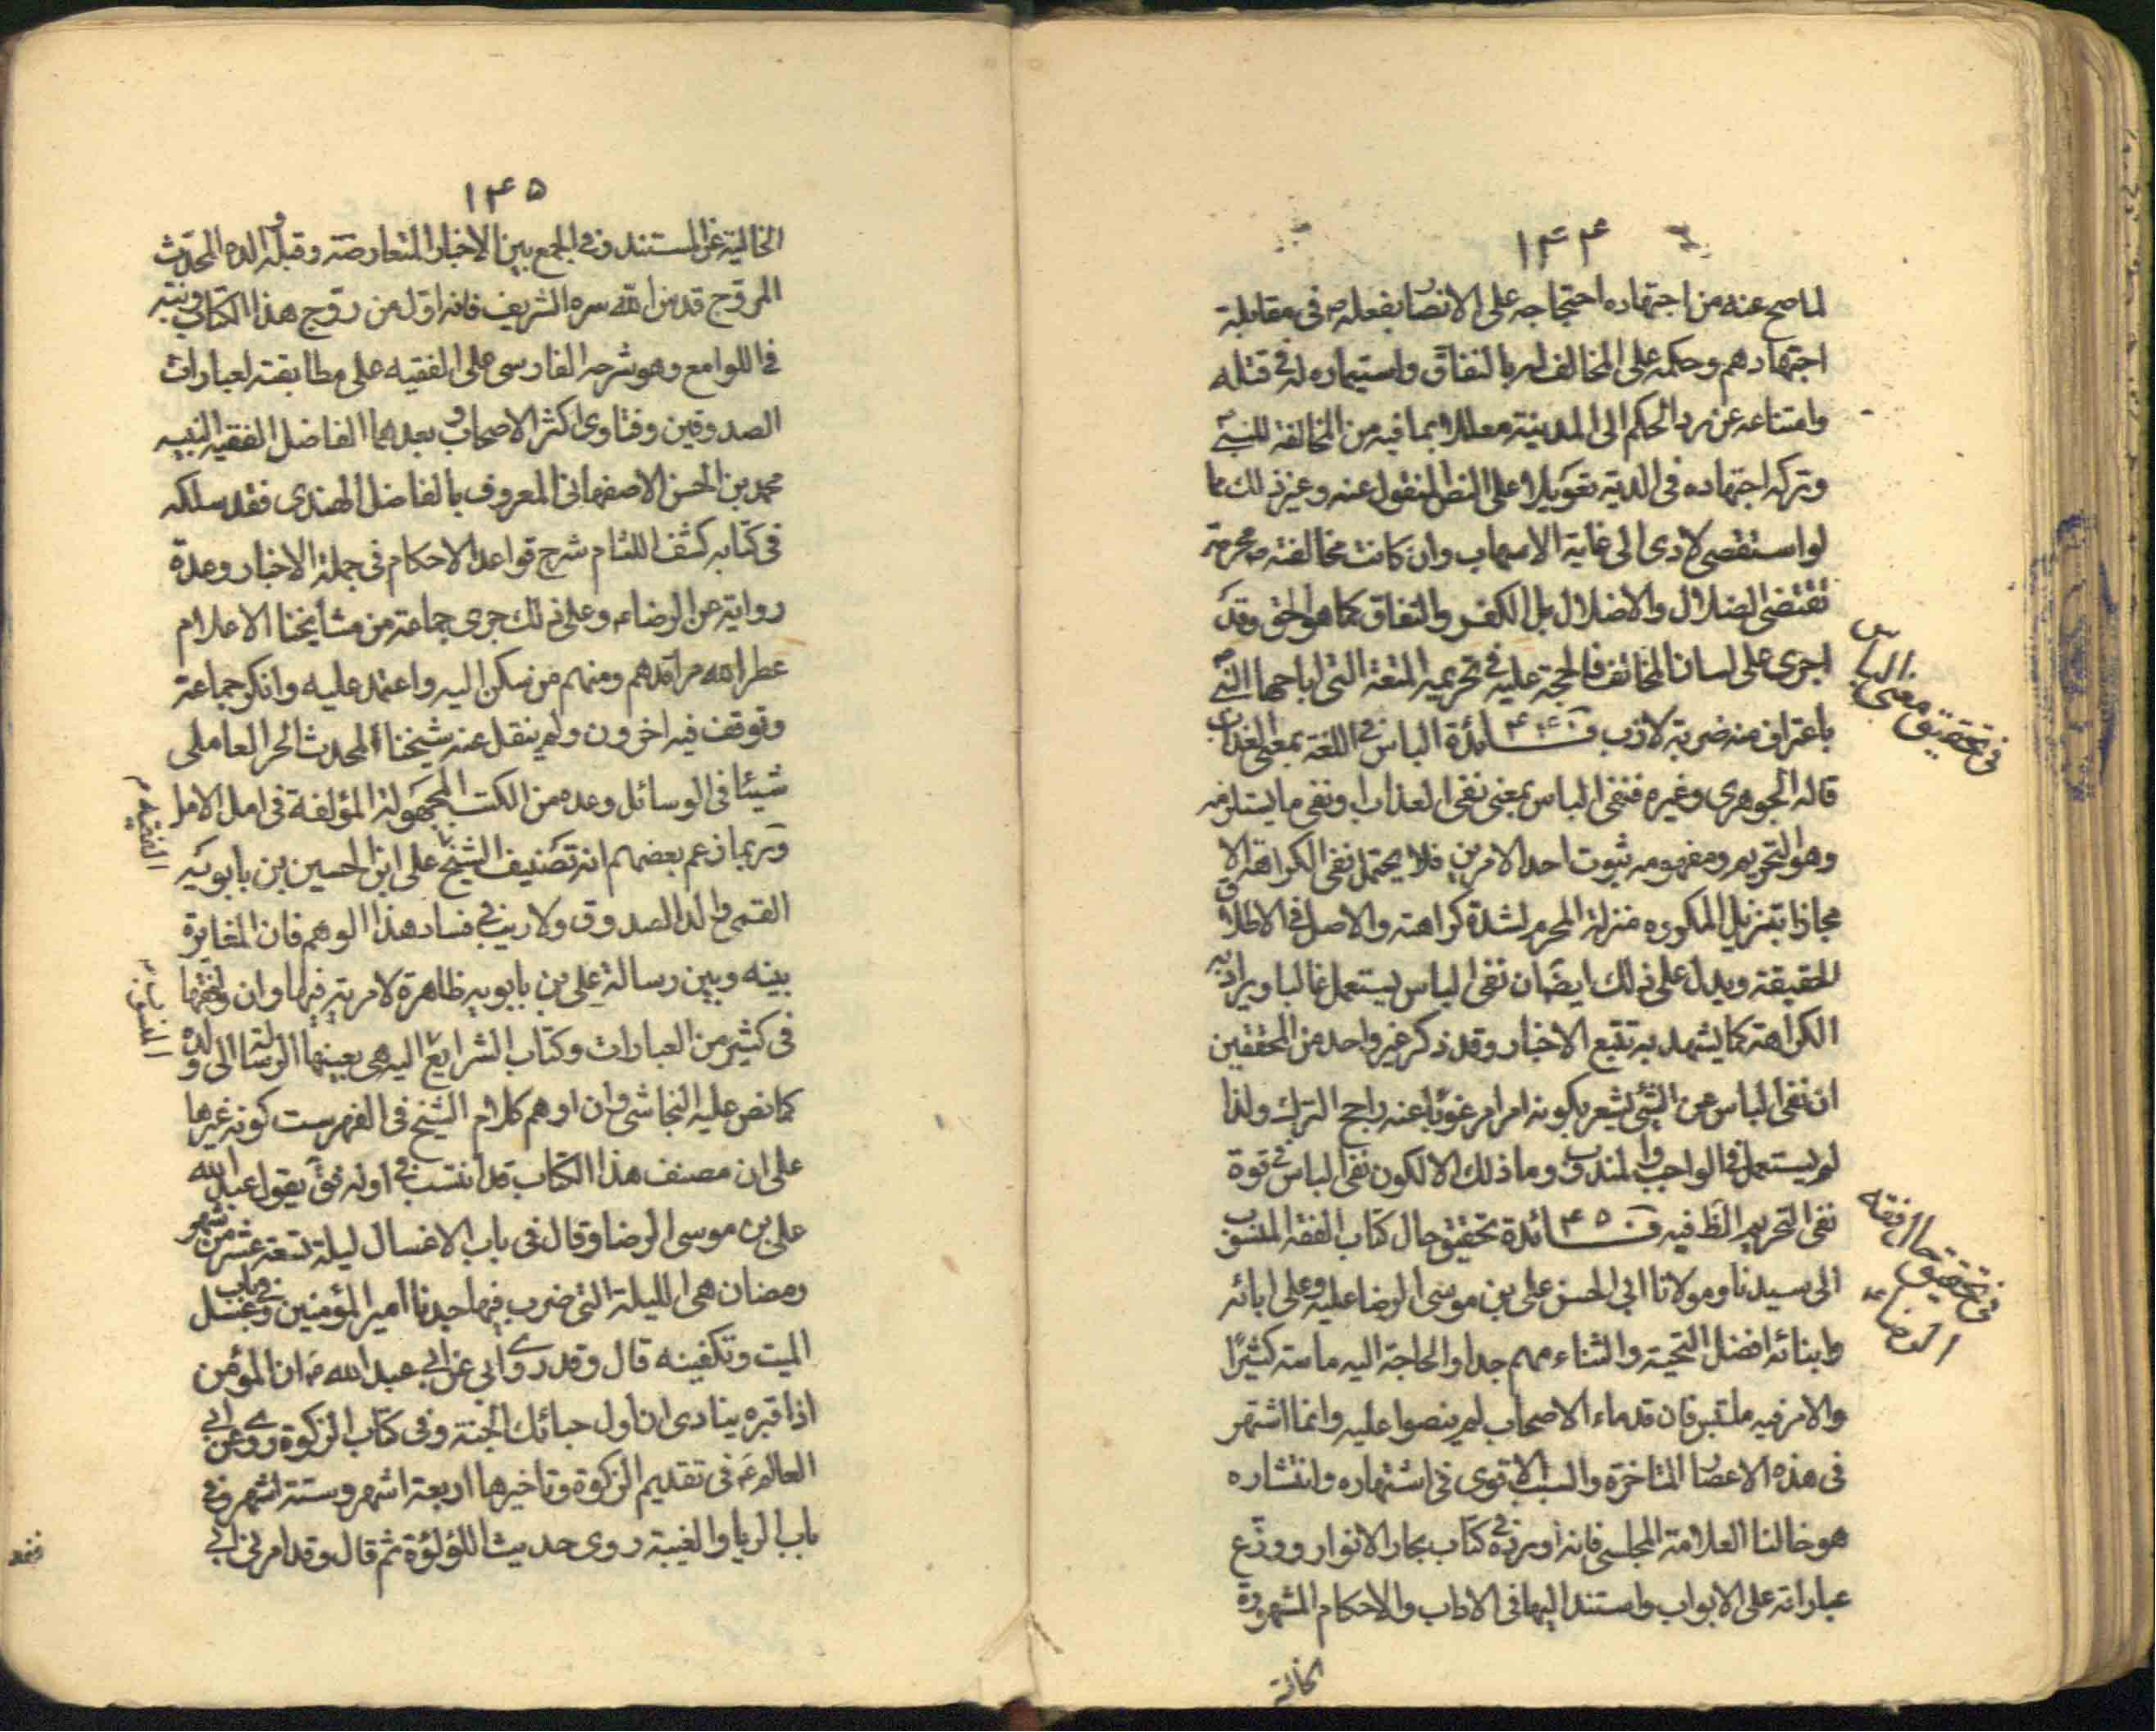 ١٤٤
لما صح عنه من اجتهاده احتجاجه على الانصار بفعله ص فى مقابلة
اجتهادهم وحكمه على المخالف له بالنفاق واستيماره له فى قتله
وامتناعه عن رد الحكم الى المدينة معللا بما فيه من المخالفة للنبى
وتركه اجتهاده فى الدية تعويلا على النص المنقول عنه وغير ذلك مما
لو استقصى لادى الى غاية الاسهاب وان كانت مخالفته ص محرمة
تقتضى الضلال والاضلال بل الكفر والنفاق كما هو الحق وقد
اجرى على لسان المخالف فالحجة عليه فى تحريمه المتعة التى اباحها النبى
باعتراف منه ضربة لازب فــائدة الباس فى اللغة بمعنى العذاب
قاله الجوهرى وغيره فنفى الباس بمعنى نفى العذاب ونفى ما يستلزمه
وهو التحريم ومفهومه ثبوت احد الامرين فلا يحتمل نفى الكراهة الا
مجازا بتنزيل المكروه منزلة المحرم لشدة كراهته والاصل فى الاطلاق
الحقيقة ويدل على ذلك ايضا ان نفى الباس يستعمل غالبا ويراد به
الكراهة كما يشهد به تتبع الاخبار وقد ذكر غير واحد من المحققين
ان نفى الباس عن الشئ يشعر بكونه امرا مرغوبا عنه راجح الترك ولذا
لم يستعمل فى الواجب والمندوب وما ذلك الا لكون نفى الباس فى قوة
نفى التحريم الظ فيه فــائدة تحقيق حال كتاب الفقه المنسوب
الى سيدنا ومولانا ابى الحسن على بن موسى الرضا عليه وعلى ابائه
وابنائه افضل التحية والثناء مهم جدا والحاجة اليه ماسة كثيرا
والامر فيه ملتبس فان قدماء الاصحاب لم ينصوا عليه وانما اشتهر
فى هذه الاعصار المتاخرة والسبب الاقوى فى اشتهاره وانتشاره
هو خالنا العلامة المجلسى فانه اورده فى كتاب بحار الانوار ووزع
عباراته على الابواب واستند اليها فى الاداب والاحكام المشهورة
الخالية
فى تحقيق معنى الباس
فى تحقيق حال فقه
الرضا ع
١٤٥
الخالية عن المستند وفى الجمع بين الاخبار المتعارضة وقبله والده المحدث
المروج قدس الله سره الشريف فانه اول من روج هذا الكتاب ونبه
فى اللوامع وهو شرحه الفارسى على الفقيه على مطابقته لعبارات
الصدوقين وفتاوى اكثر الاصحاب وبعدهما الفاضل الفقيه النبيه
محمد بن الحسن الاصفهانى المعروف بالفاضل الهندى فقد سلكه
فى كتابه كشف اللثام شرح قواعد الاحكام فى جملة الاخبار وعده
رواية عن الرضا ع وعلى ذلك جرى جماعة من مشايخنا الاعلام
عطر الله مراقدهم ومنهم من سكن اليه واعتمد عليه وانكر جماعة
وتوقف فيه اخرون ولم ينقل عنه شيخنا المحدث الحر العاملى
شيئا فى الوسائل وعده من الكتب المجهولة المؤلفة فى امل الامل
وربما زعم بعضهم انه تصنيف الشيخ على ابن الحسين بن بابويه
القمى والد الصدوق ولا ريب فى فساد هذا الوهم فان المغايرة
بينه وبين رسالة على بن بابويه ظاهرة لا مرية فيها وان وافقها
فى كثير من العبارات وكتاب الشرايع اليه هى بعينها الرسالة الى ولده
كما نص عليه النجاشى وان اوهم كلام الشيخ فى الفهرست كونه غيرها
على ان مصنف هذا الكتاب قد انتسب فى اوله يقول عبد الله
على بن موسى الرضا وقال فى باب الاغسال ليلة تسعة عشر من شهر
رمضان هى الليلة التى ضرب فيها جدنا امير المؤمنين وفى باب غسل
الميت وتكفينه قال وقد روى ابى عن ابى عبد الله ع ان المؤمن
اذا قبره ينادى ان اول حبائك الجنة وفى كتاب الزكوة روى عن ابى
العالم ع فى تقديم الزكوة وتاخيرها اربعة اشهر وستة اشهر وفى
باب الربا والغيبة روى حديث اللؤلؤة ثم قال وقد امرنى ابى
الفقيه م
المنسوب م